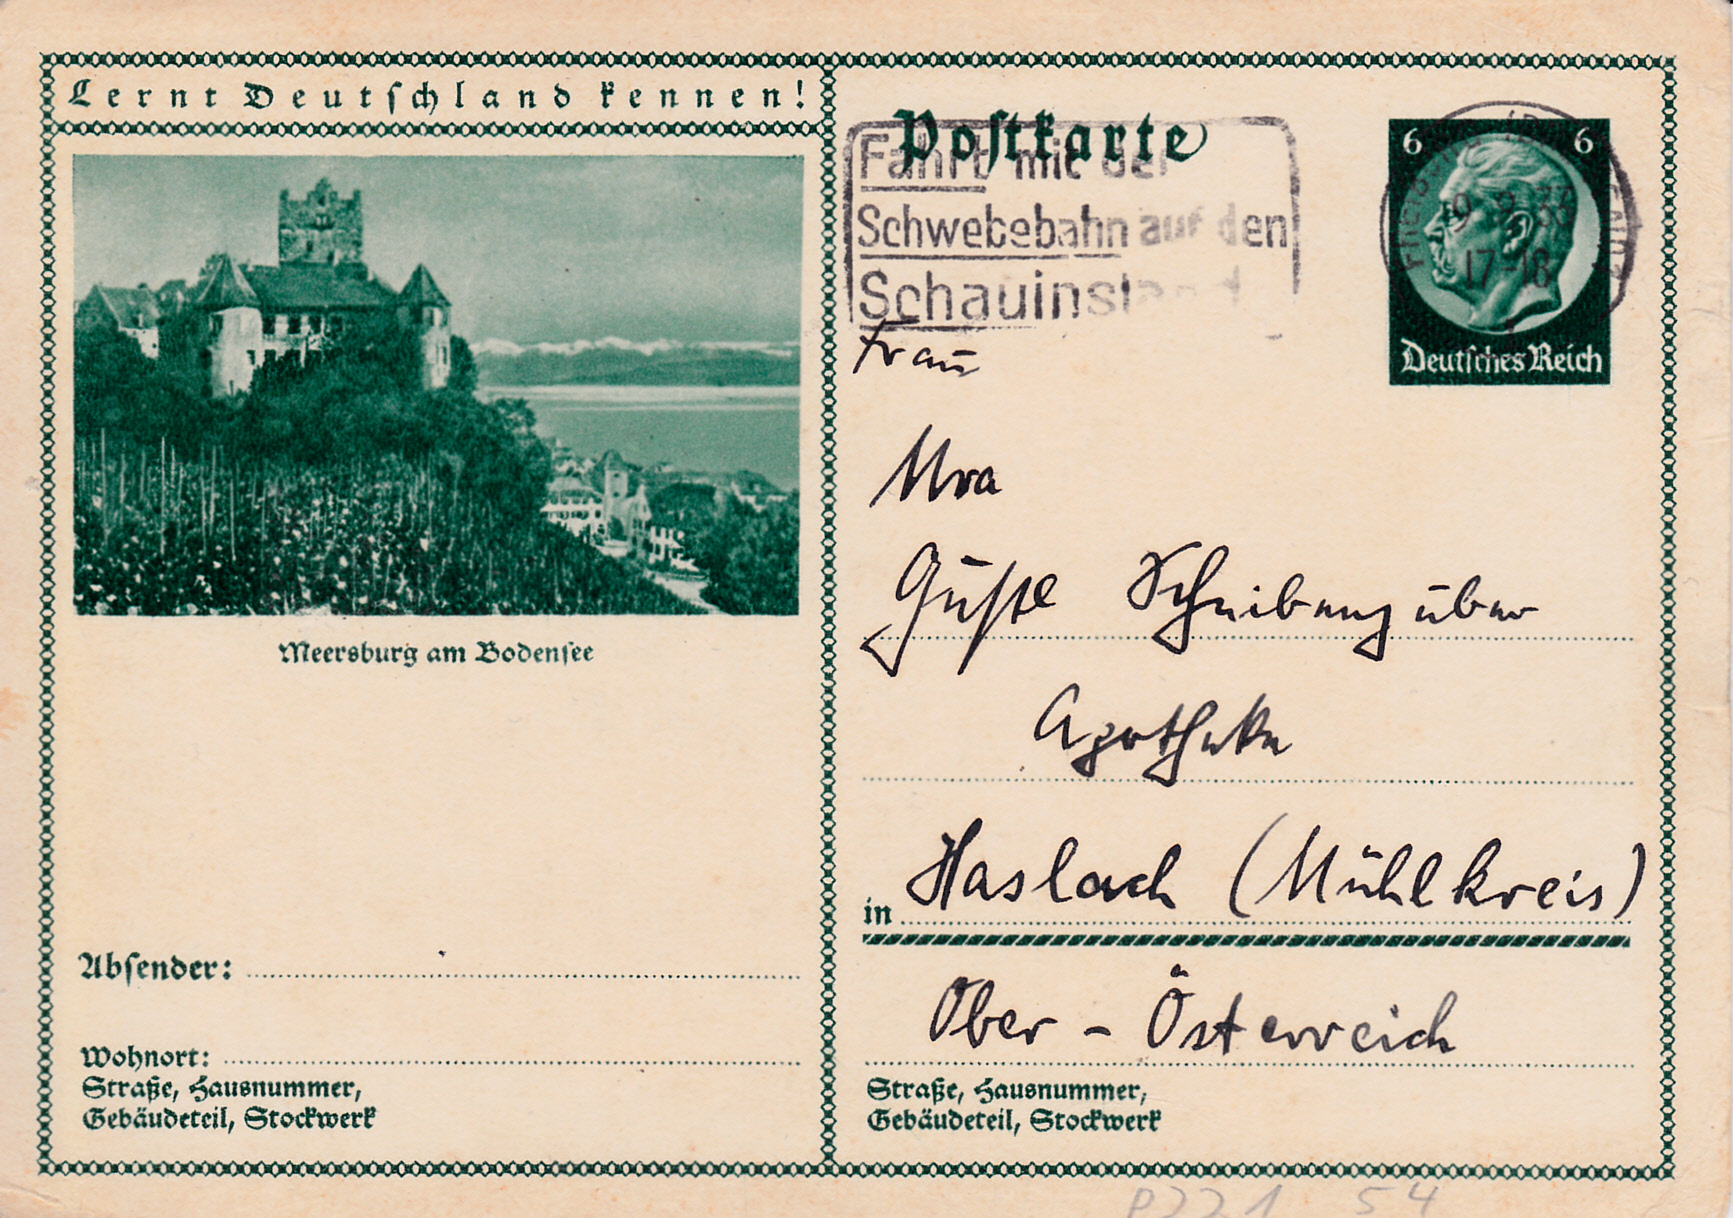 Lernt Deutschland kennen!
Meersburg am Bodensee
Absender:
Wohnort:
Straße, Hausnummer,
Gebäudeteil, Stockwerk
Postkarte
Fahrt mit der
Schwebebahn auf den
Schauinsland
6 6
17-18
Deutsches Reich
Frau
Mra
Guste
Apotheke
in Haslach (Mühlkreis)
Ober - Österreich
Straße, Hausnummer,
Gebäudeteil, Stockwerk
P221 54